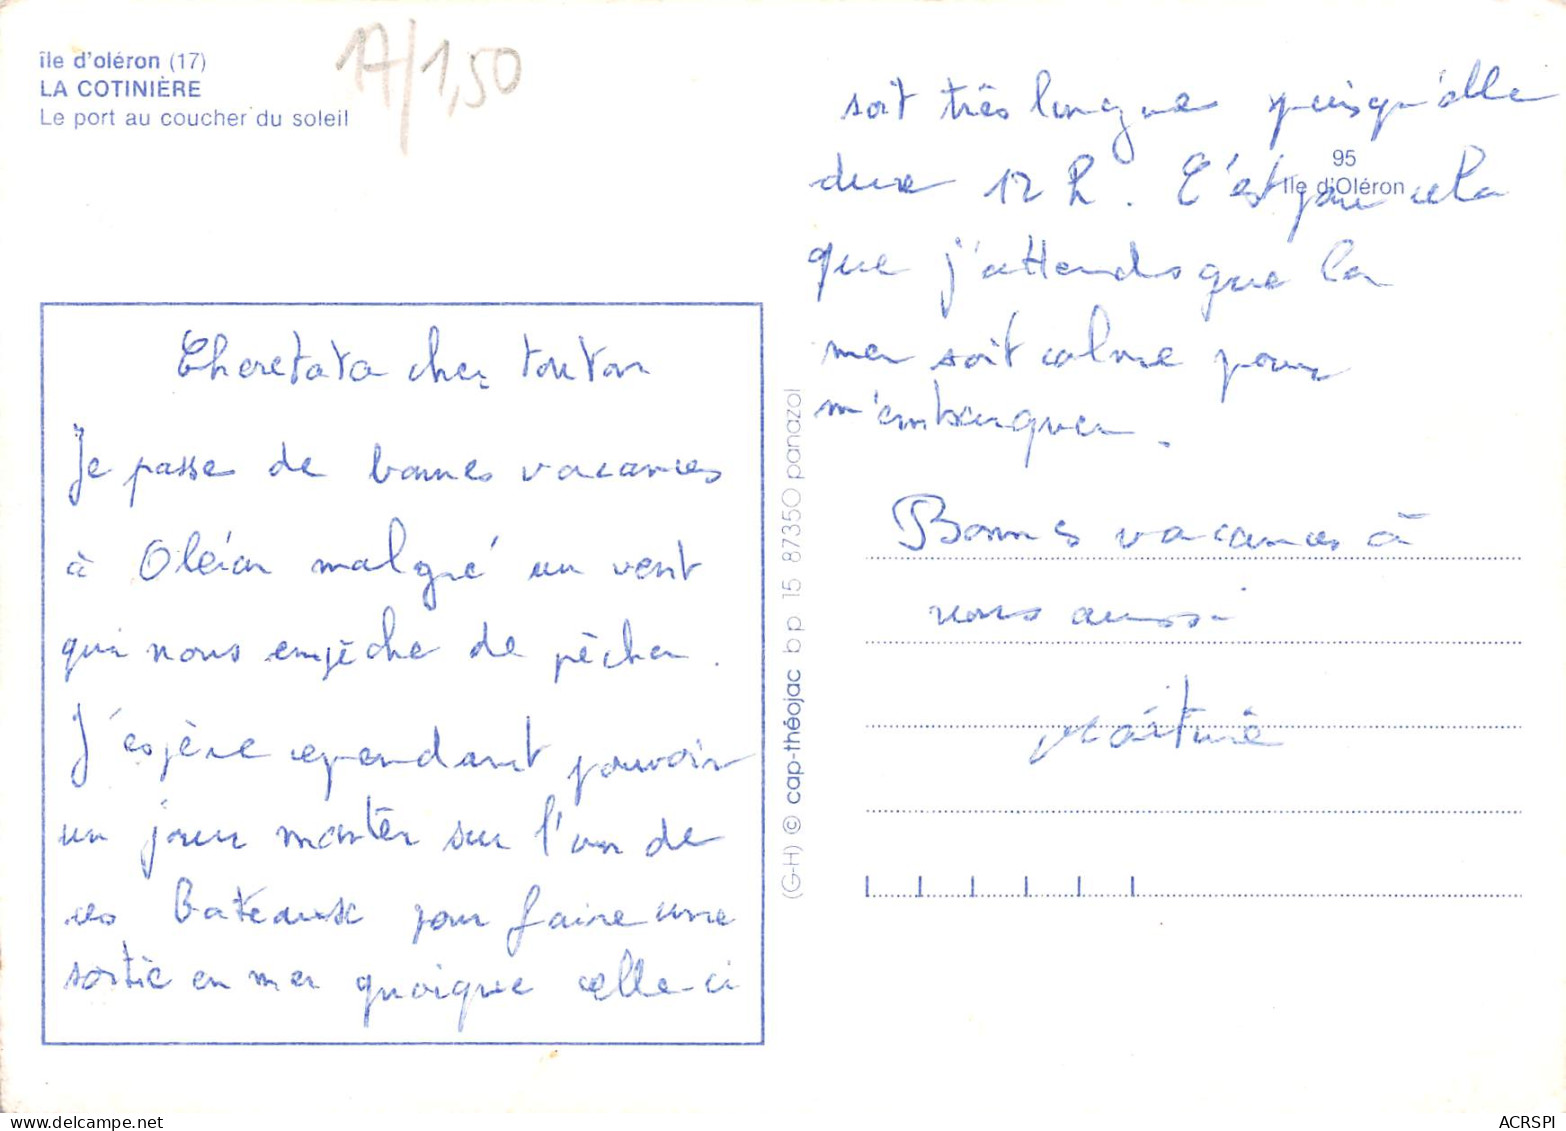 île d'oléron (17)
LA COTINIÈRE
Le port au coucher du soleil
17/1,50
Chere tata cher tonton
Je passe de bonnes vacances
à Oléron malgré un vent
qui nous empêche de pêcher.
J'espère cependant pouvoir
un jour monter sur l'un de
ces Bateaux pour faire une
sortie en mer quoique celle-ci
soit très longue puisqu'elle
dure 12 h. C'est pour cela
que j'attends que la
mer soit calme pour
m'embarquer.
Bonnes vacances à
vous aussi
95
Ile d'Oléron
(G-H) © cap-théojac bp 15 87350 panazol
ACRSPI